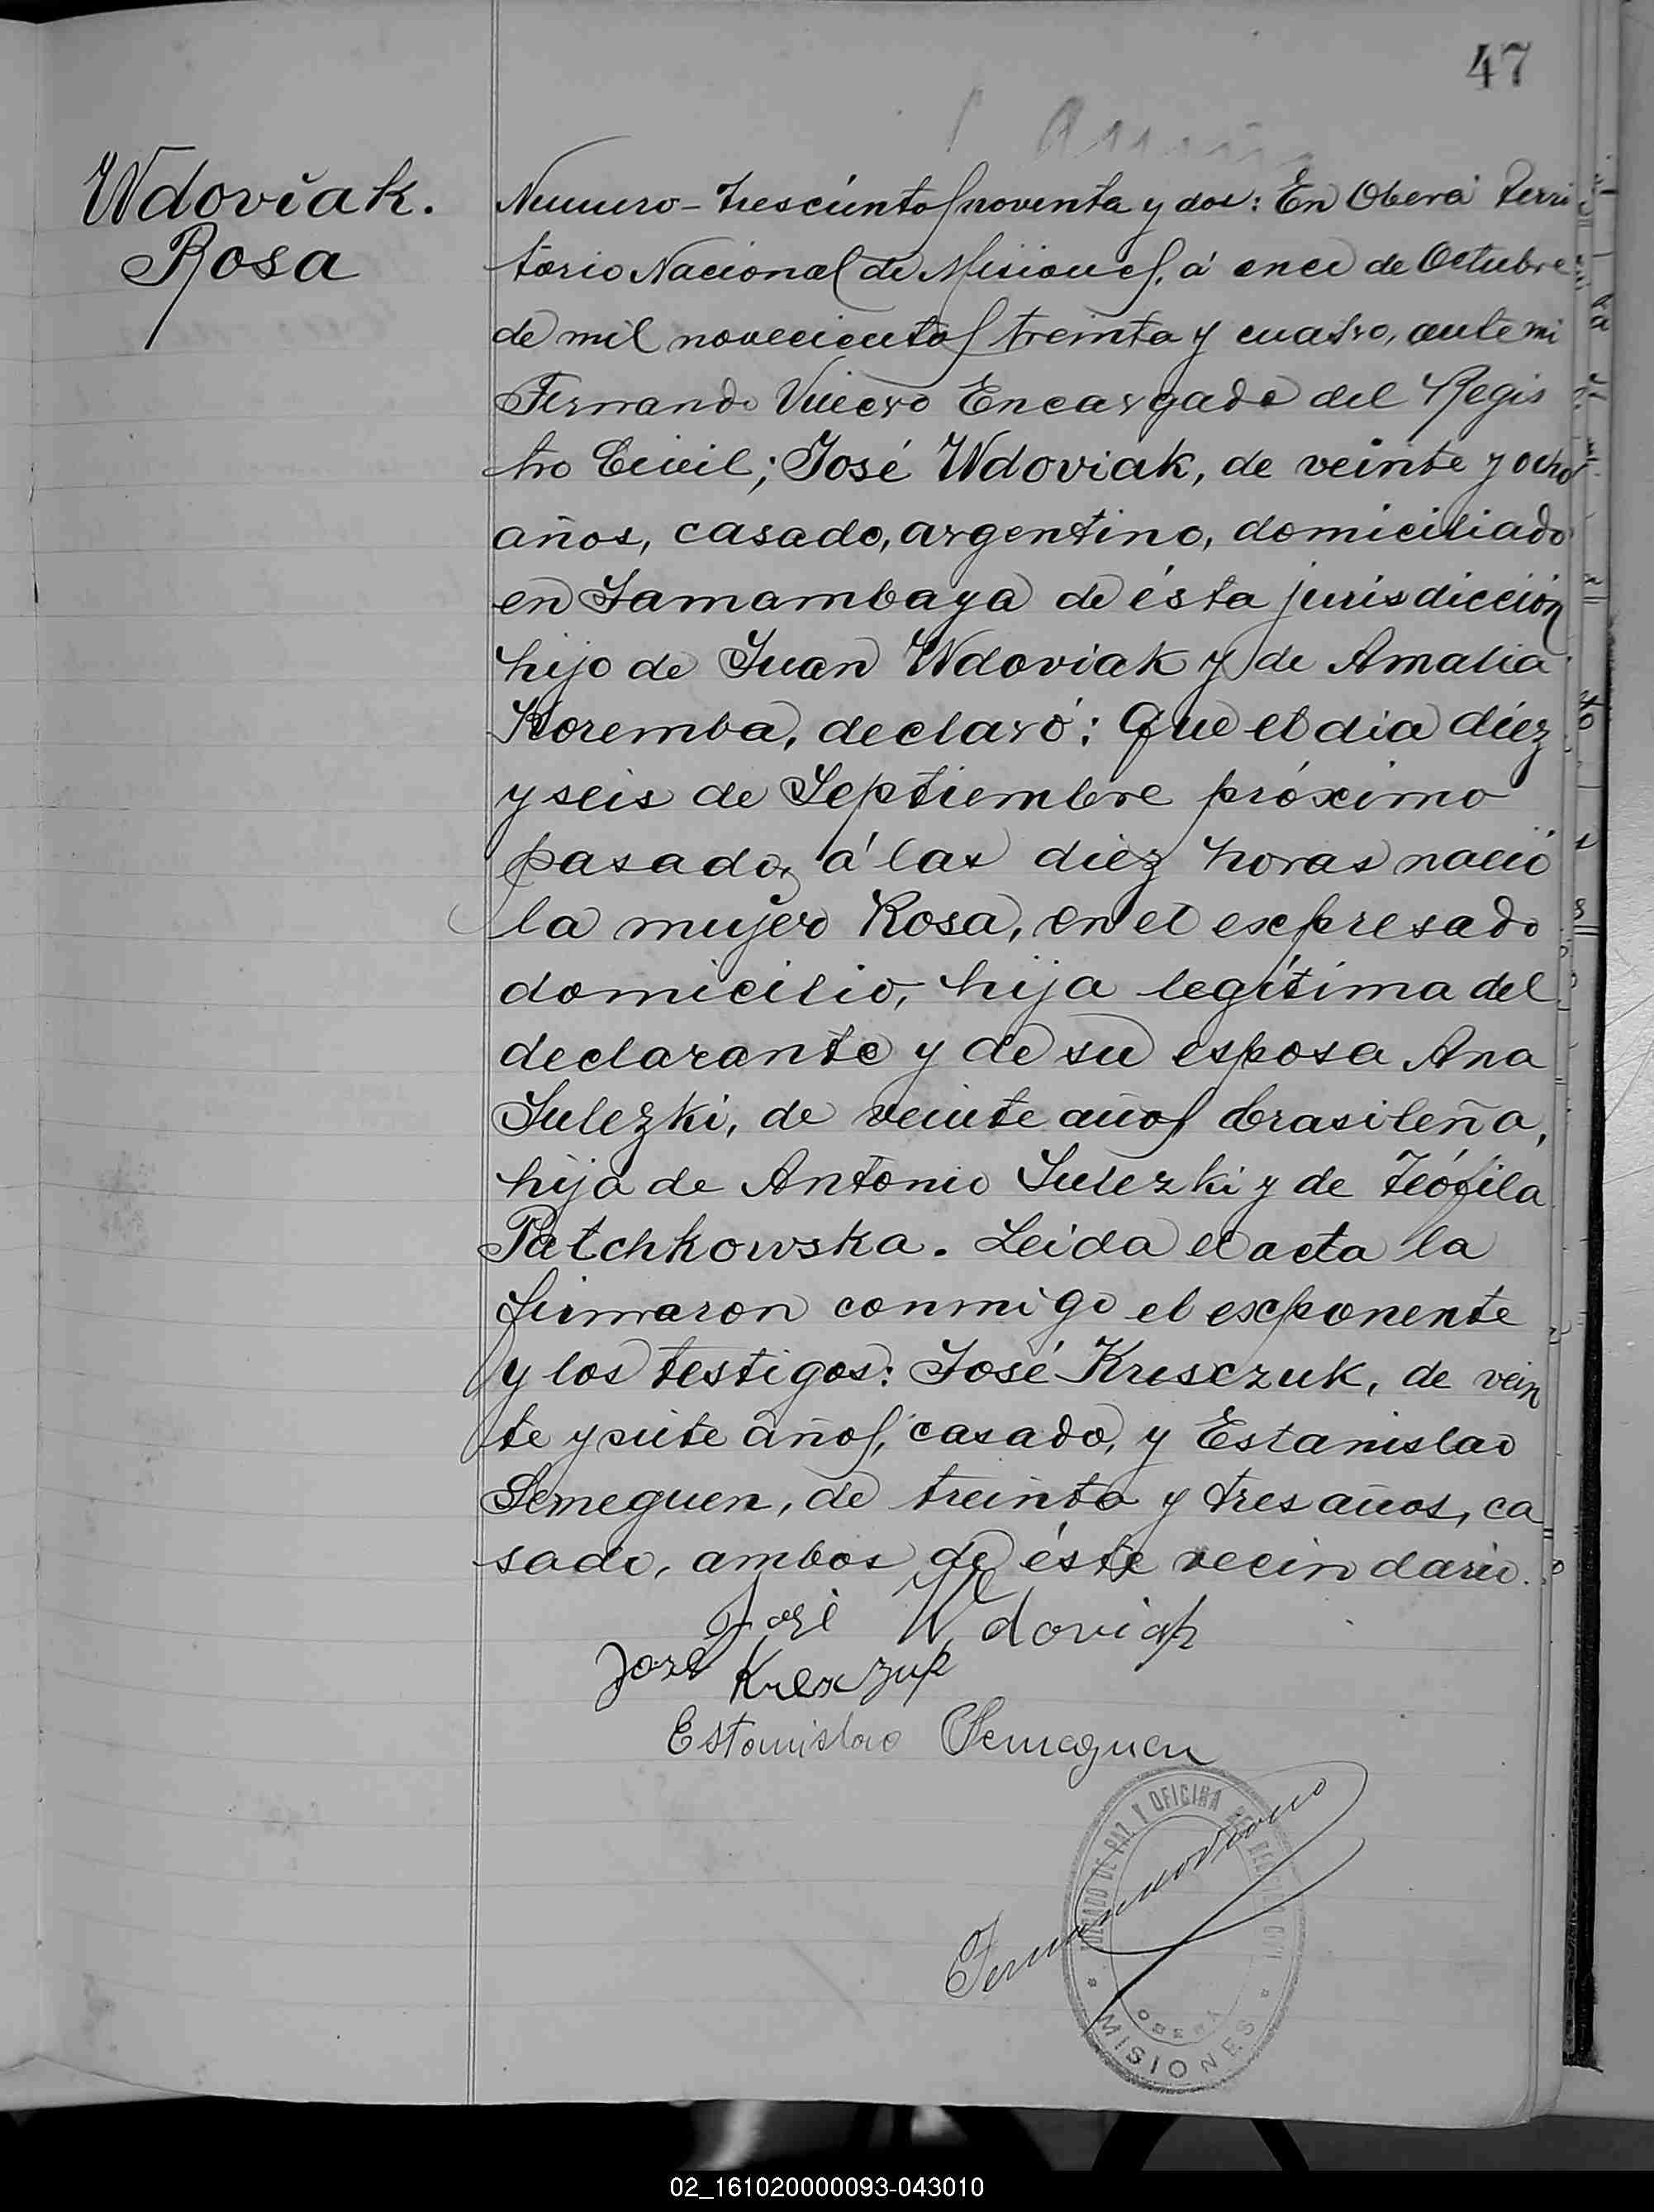 47
Wdoviak.
Rosa
Numero - trescientos noventa y dos: En Oberá Terri
torio Nacional de Misiones, á once de Octubre
de mil novecientos treinta y cuatro, ante mi
Fernando Encargado del Regis
tro Civil; José Wdoviak, de veinte y ocho
años, casado, argentino, domiciliado
en Samambaya de ésta jurisdicción
hijo de Juan Wdoviak y de Amalia
Koremba, declaró: Que el dia diéz
y seis de Septiembre próximo
pasado, á las diez horas nació
la mujer Rosa, en el expresado
domicilio, hija legítima del
declarante y de su esposa Ana
Sulezki, de veinte años brasileña,
hija de Antonio Sulezki y de Teófila
Patchkowska. Leida el acta la
firmaron conmigo el exponente
y los testigos: José Kresczuk, de vein
te y siete años, casado, y Estanislao
Semeguen, de treinta y tres años, ca
sado, ambos de éste vecindario.
José Wdoviak
José
Estanislao Semeguen
JUZGADO DE PAZ Y OFICINA DEL REGISTRO CIVIL
OBERÁ
* MISIONES *
02_161020000093-043010